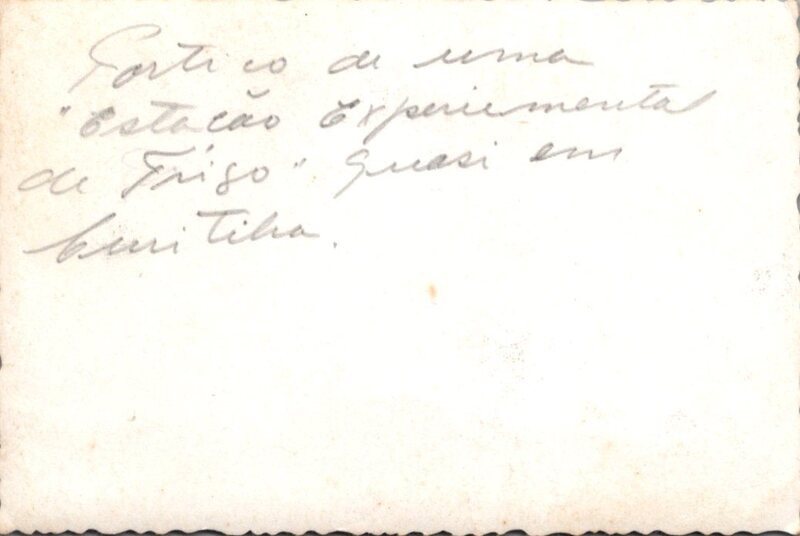 Portico de uma
"Estacão Experiemental
de Trigo" quasi em
Curitiba.